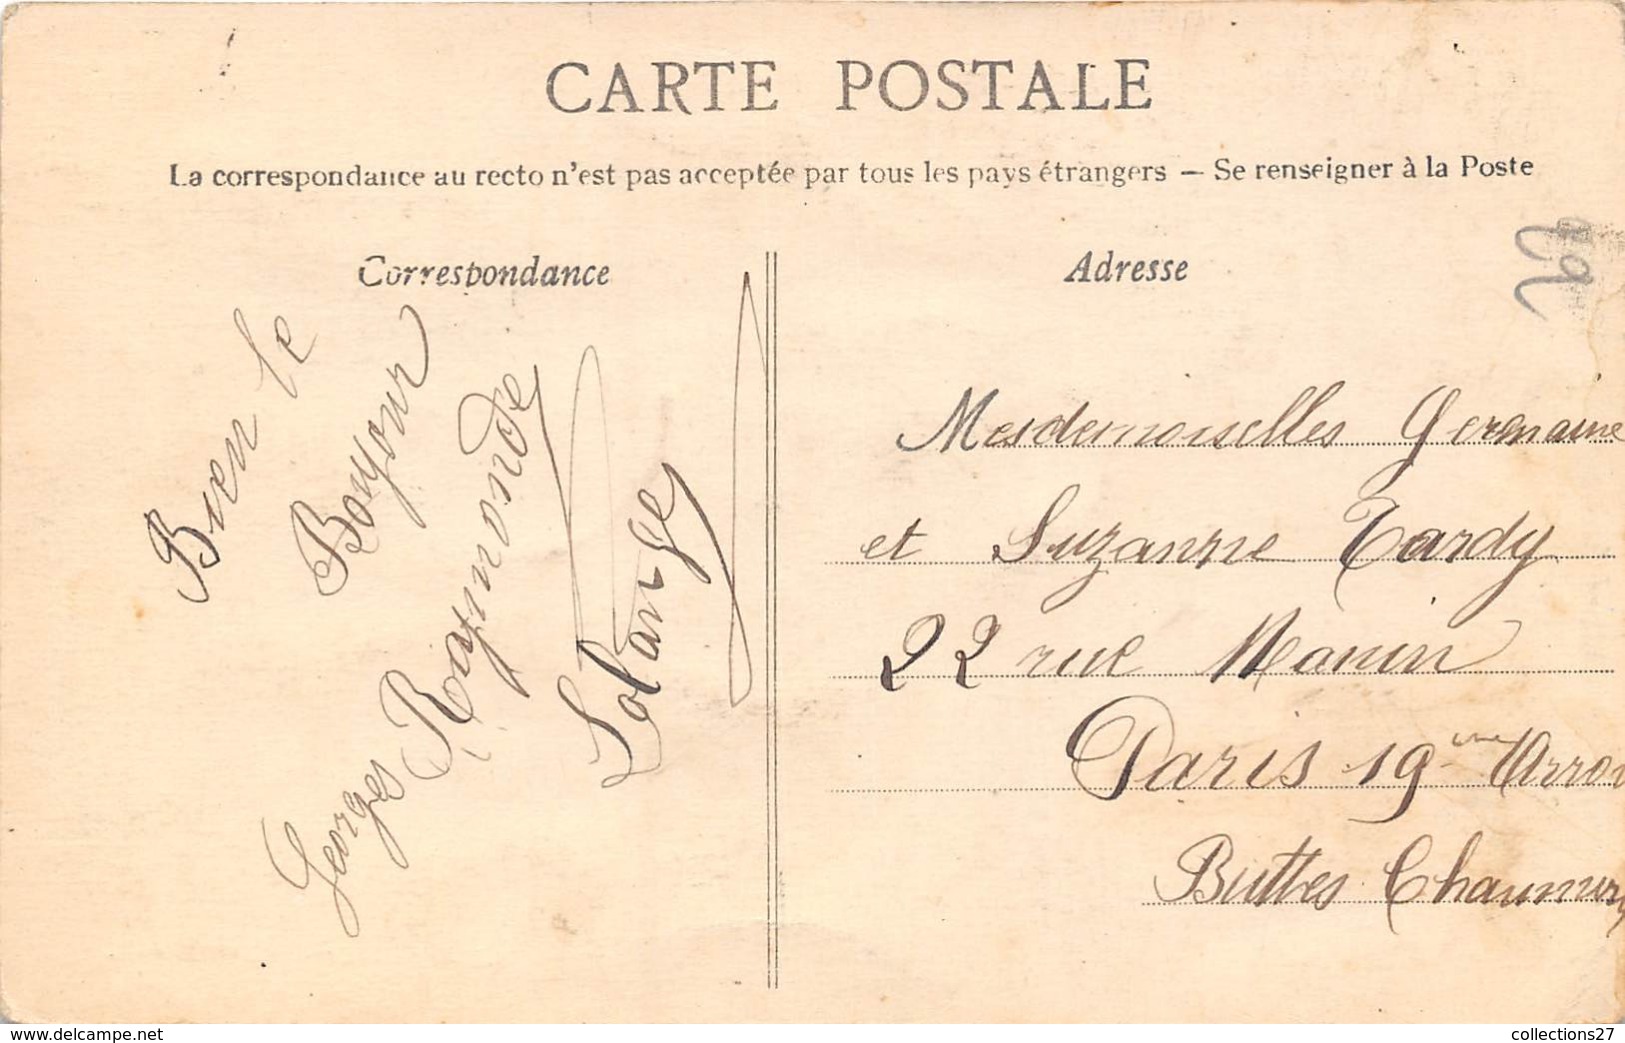 CARTE POSTALE
La correspondance au recto n'est pas acceptée par tous les pays étrangers — Se renseigner à la Poste
Correspondance
Bien le
Bonjour
Georges Raymonde
Solange
Adresse
Mesdemoiselles Germaine
et Suzanne Tardy
22 rue Manin
Paris 19ème Arron
Buttes Chaumon
www.delcampe.net
collections27